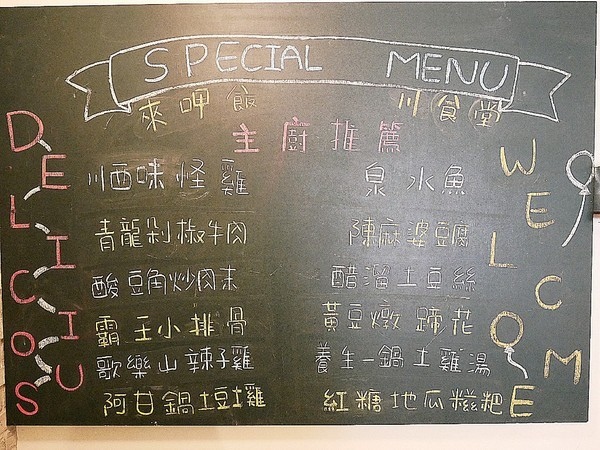 SPECIAL MENU
來呷飯 川食堂
主廚推薦
DELICIOUS
川西味怪雞 泉水魚
青龍剁椒牛肉 陳麻婆豆腐
酸豆角炒肉末 醋溜土豆絲
霸王小排骨 黃豆燉蹄花
歌樂山辣子雞 養生一鍋土雞湯
阿甘鍋土豆土雞 紅糖地瓜糍粑
WELCOME